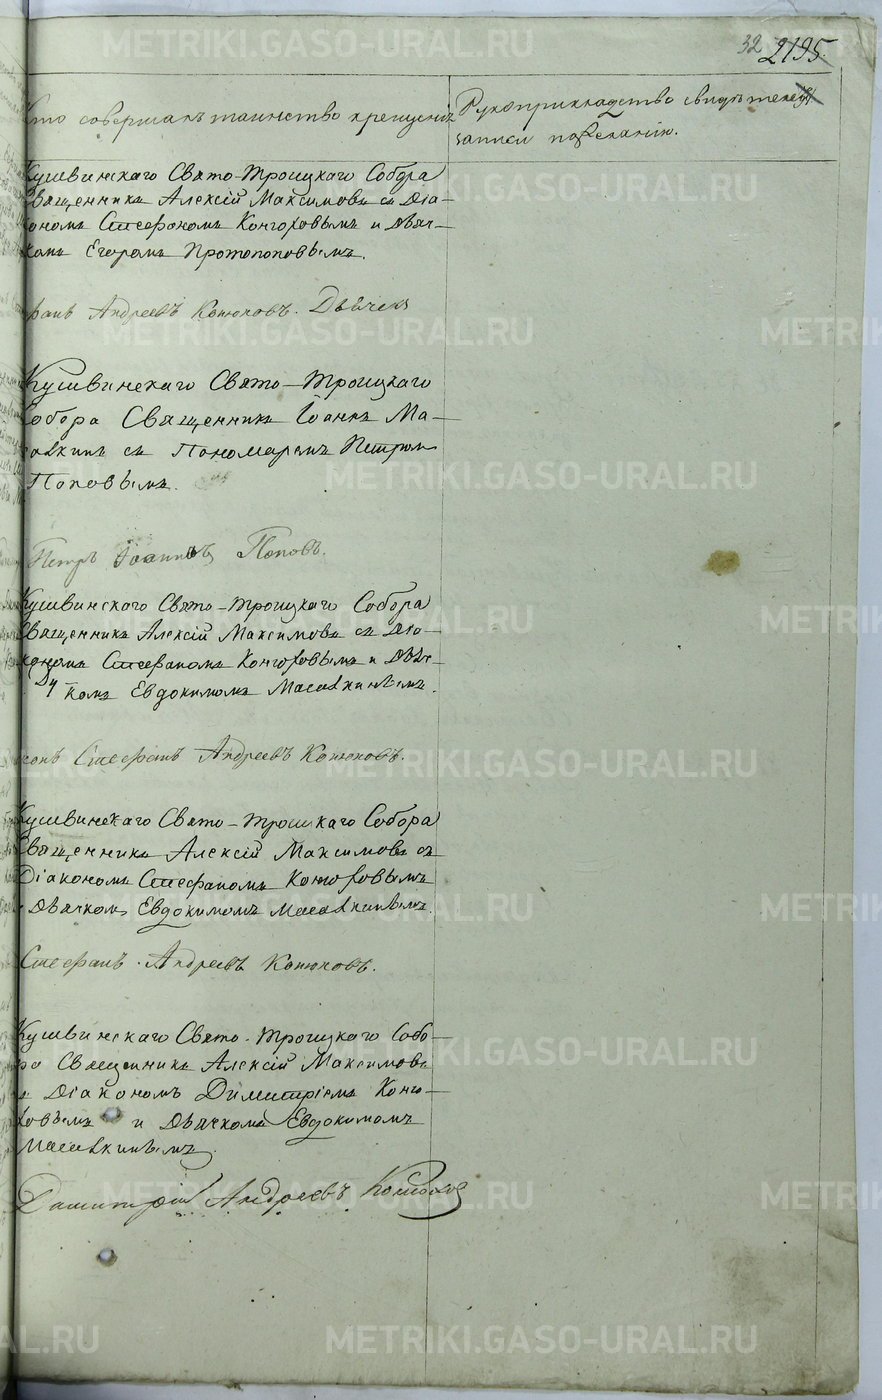 32 2195.
Кто совершалъ таинство крещенія
Рукоприкладство свидѣтелей
записи по желанію.
Кушвинскаго Свято-Троицкаго Собора
Священникъ Алексій Максимовъ съ Діа-
кономъ Стефаномъ Конюховымъ и Дьяч-
комъ Егоромъ Протопоповымъ.
Андреевъ Конюховъ. Дьячекъ
Кушвинскаго Свято-Троицкаго
Собора Священникъ Іоаннъ Ма-
съ Пономаремъ Петромъ
Поповымъ.
Петръ Іоанновъ Поповъ.
Кушвинскаго Свято-Троицкаго Собора
Священникъ Алексій Максимовъ съ Діа-
кономъ Стефаномъ Конюховымъ и Дьяч-
комъ Евдокимомъ Масалкинымъ.
Стефанъ Андреевъ Конюховъ.
Кушвинскаго Свято-Троицкаго Собора
Священникъ Алексій Максимовъ съ
Діакономъ Стефаномъ Конюховымъ
и Дьячкомъ Евдокимомъ Масалкинымъ.
Стефанъ Андреевъ Конюховъ.
Кушвинскаго Свято-Троицкаго Собо-
ра Священникъ Алексій Максимовъ
съ Діакономъ Димитріемъ Коню-
ховымъ и Дьячкомъ Евдокимомъ
Масалкинымъ.
Димитрій Андреевъ Конюховъ
METRIKI.GASO-URAL.RU